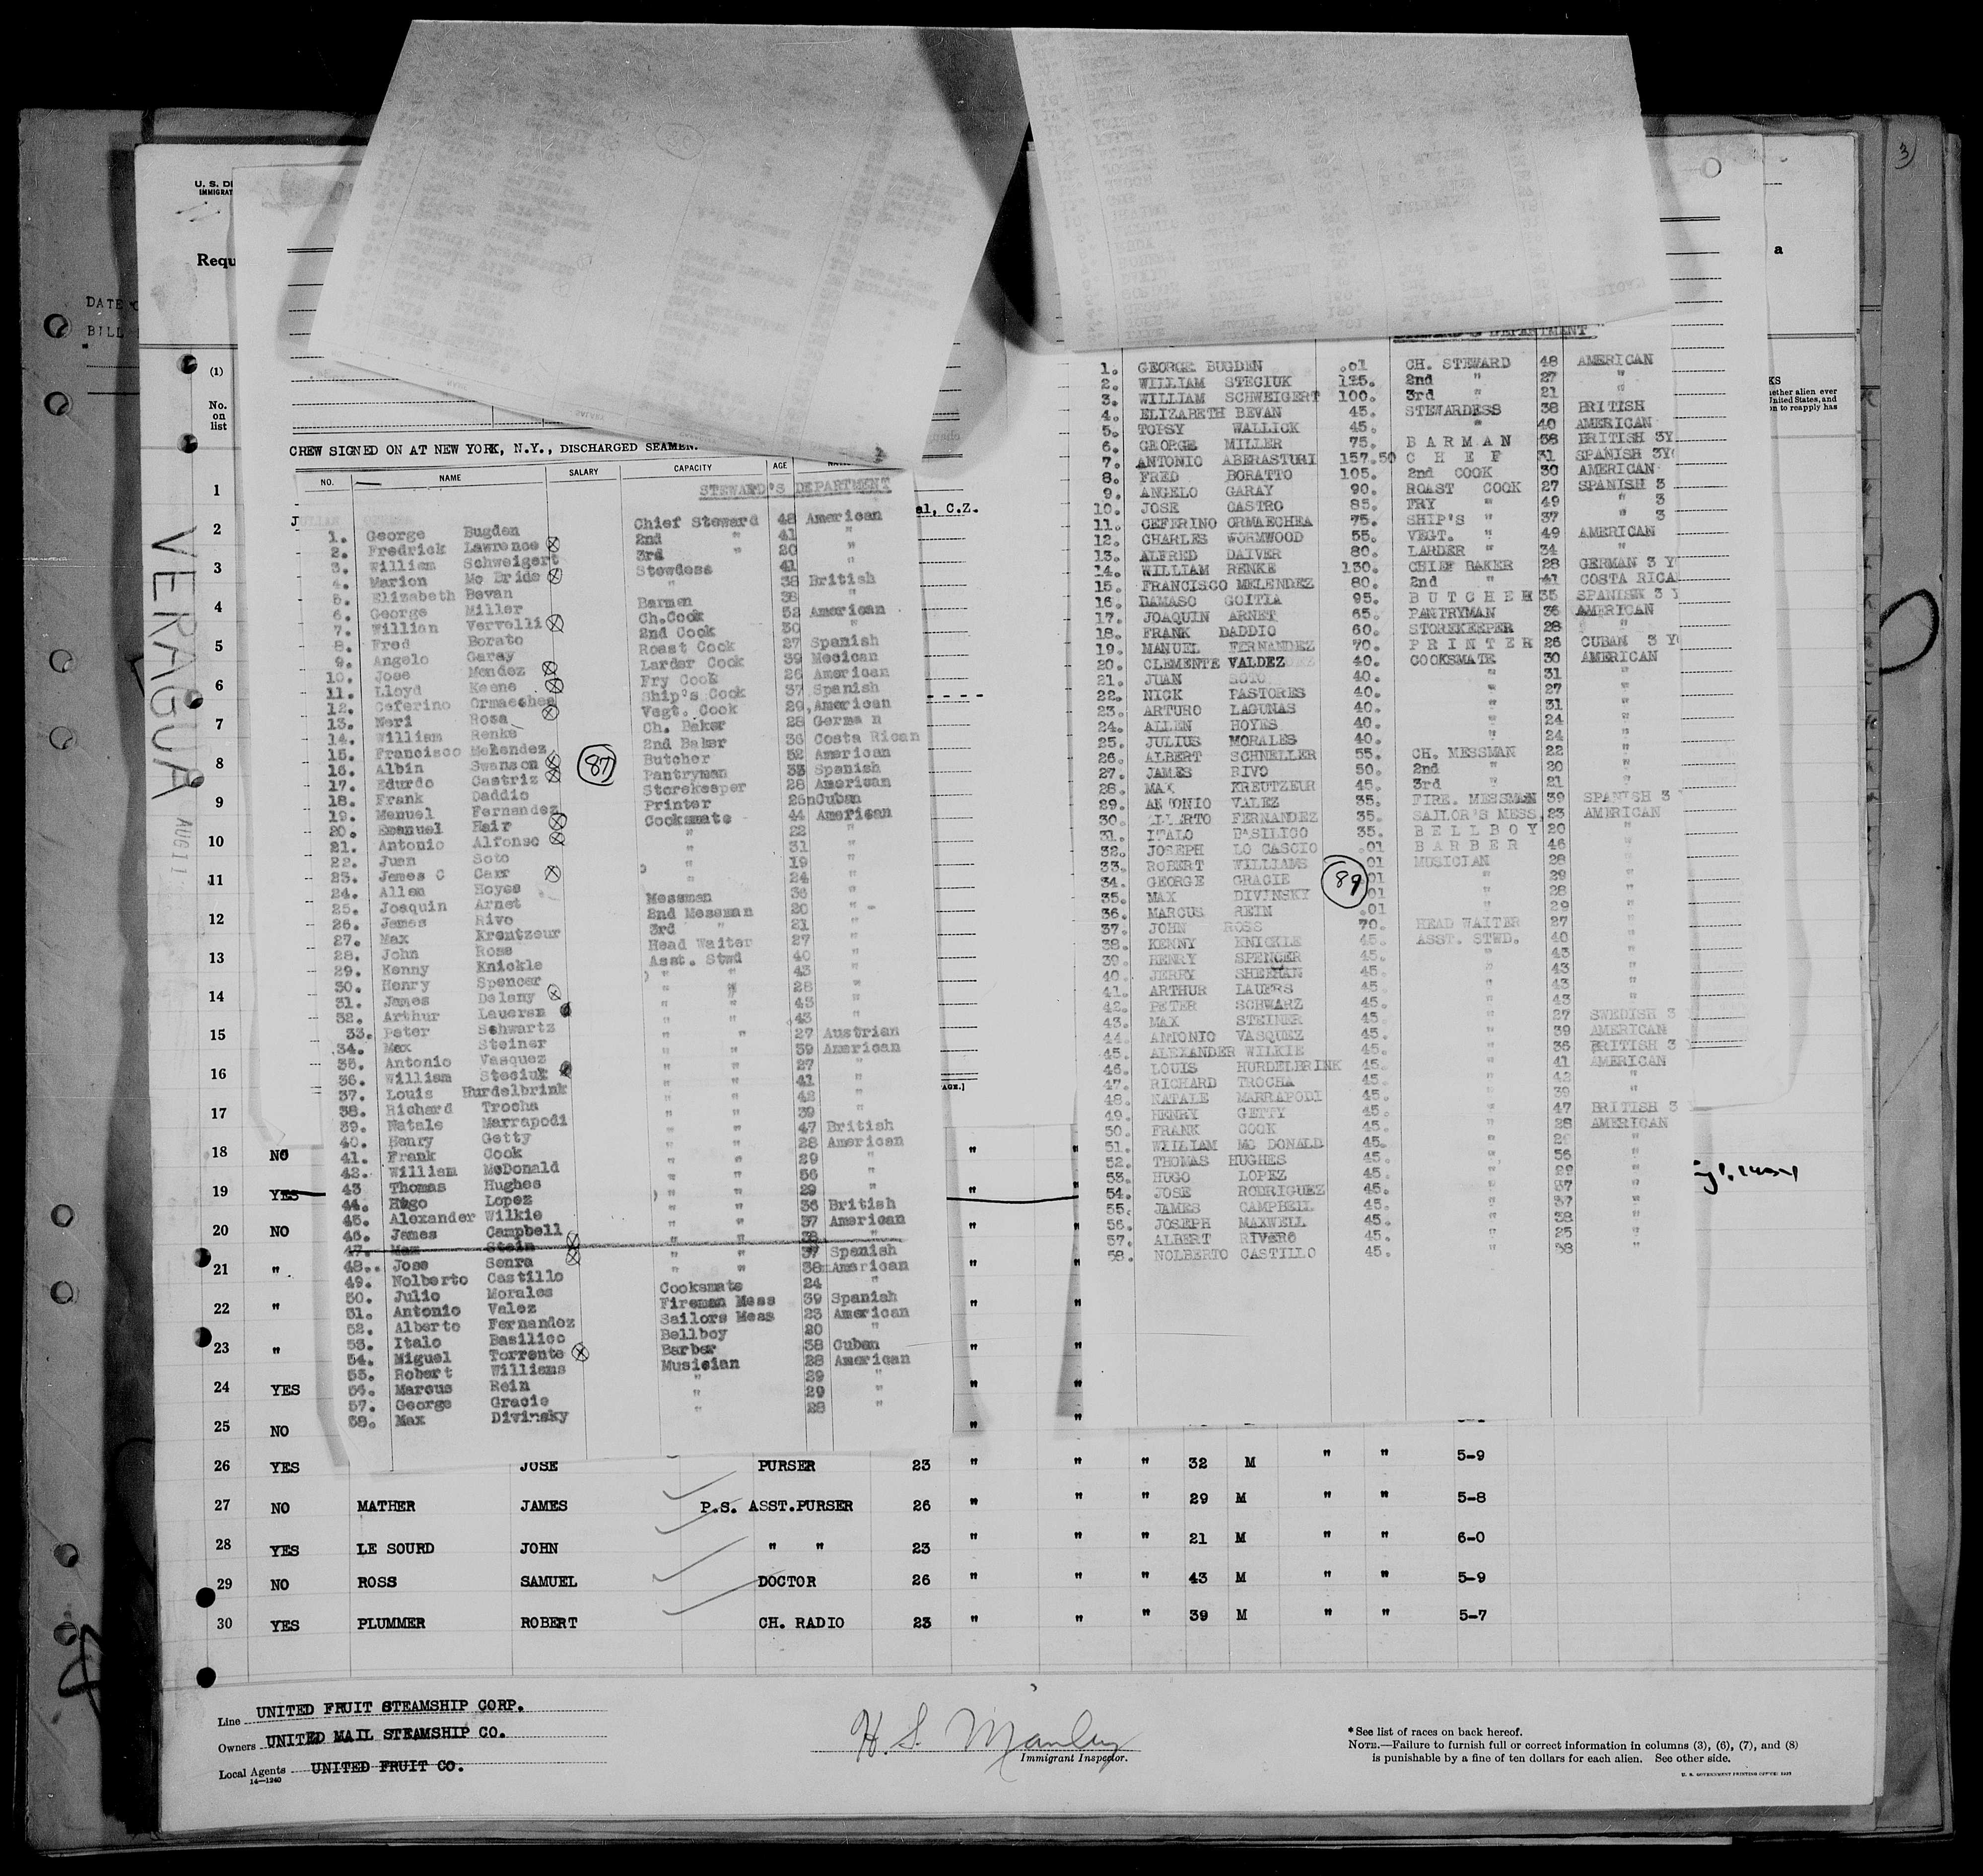 3
U. S. DE
IMMIGRAT
Requ
a
DATE O
BILL
(1)
No.
on
list
VERAGUA
AUG 11
CREW SIGNED ON AT NEW YORK, N.Y., DISCHARGED SEAMEN
NO. NAME SALARY CAPACITY AGE
STEWARD'S DEPARTMENT
al, C.Z.
1. George Bugden Chief Steward 48 American
2. Fredrick Lawrence 2nd " 41 "
3. William Schweigert 3rd " 20 "
4. Marion Mc Bride Stewdess 41 "
5. Elizabeth Bevan " 38 British
6. George Miller Barman 38 "
7. William Vervelli Ch.Cook 52 American
8. Fred Borato 2nd Cook 30 "
9. Angelo Garay Roast Cook 27 Spanish
10. Jose Mendez Larder Cook 39 Mexican
11. Lloyd Keene Fry Cook 26 American
12. Ceferino Ormaechea Ship's Cook 37 Spanish
13. Neri Rosa Vegt. Cook 29 American
14. William Renke Ch. Baker 28 German
15. Francisco Melendez 2nd Baker 36 Costa Rican
16. Albin Swanson Butcher 52 American
17. Edurdo Castriz Pantryman 33 Spanish
18. Frank Daddio Storekeeper 28 American
19. Manuel Fernandez Printer 26 Cuban
20. Emanuel Hair Cooksmate 44 American
21. Antonio Alfonso " 22 "
22. Juan Soto " 31 "
23. James C Carr " 19 "
24. Allen Hoyes " 24 "
25. Joaquin Arnet Messman 36 "
26. James Rivo 2nd Messman 20 "
27. Max Krentzeur 3rd " 21 "
28. John Ross Head Waiter 27 "
29. Kenny Knickle Asst. Stwd 40 "
30. Henry Spencer " " 43 "
31. James Delany " " 28 "
32. Arthur Lauersn " " 43 "
33. Peter Schwartz " " 43 "
34. Max Steiner " " 27 Austrian
35. Antonio Vasquez " " 39 American
36. William Steciuk " " 27 "
37. Louis Hurdelbrink " " 41 "
38. Richard Trocha " " 42 "
39. Natale Marrapodi " " 39 "
40. Henry Getty " " 47 British
41. Frank Cook " " 28 American
42. William McDonald " " 29 "
43 Thomas Hughes " " 56 "
44. Hugo Lopez " " 29 "
45. Alexander Wilkie " " 36 British
46. James Campbell " " 37 American
47. Max Stein " " 38 "
48. Jose Senra " " 37 Spanish
49. Nolberto Castillo " " 38 American
50. Julio Morales Cooksmate 24 "
51. Antonio Valez Fireman Mess 39 Spanish
52. Alberto Fernandez Sailors Mess 23 American
53. Italo Basilico Bellboy 20 "
54. Miguel Torrente Barber 38 Cuban
55. Robert Williams Musician 28 American
56. Marcus Rein " 29 "
57. George Gracie " 29 "
58. Max Divinsky " 28 "
87
DEPARTMENT
1. GEORGE BUGDEN .01 CH. STEWARD 48 AMERICAN
2. WILLIAM STECIUK 125. 2nd " 27 "
3. WILLIAM SCHWEIGERT 100. 3rd " 21 "
4. ELIZABETH BEVAN 45. STEWARDESS 38 BRITISH
5. TOPSY WALLICK 45. " 40 AMERICAN
6. GEORGE MILLER 75. BARMAN 58 BRITISH 3Y
7. ANTONIO ABERASTURI 157.50 CHEF 31 SPANISH 3Y
8. FRED BORATTO 105. 2nd COOK 30 AMERICAN
9. ANGELO GARAY 90. ROAST COOK 27 SPANISH 3
10. JOSE CASTRO 85. FRY " 49 " 3
11. CEFERINO ORMAECHEA 75. SHIP'S " 37 " 3
12. CHARLES WORMWOOD 55. VEGT. " 49 AMERICAN
13. ALFRED DAIVER 80. LARDER " 34 "
14. WILLIAM RENKE 130. CHIEF BAKER 28 GERMAN 3 Y
15. FRANCISCO MELENDEZ 80. 2nd " 41 COSTA RICA
16. DAMASO GOITIA 95. BUTCHER 35 SPANISH 3 Y
17. JOAQUIN ARNET 65. PANTRYMAN 36 AMERICAN
18. FRANK DADDIO 60. STOREKEEPER 28 "
19. MANUEL FERNANDEZ 70. PRINTER 26 CUBAN 3 Y
20. CLEMENTE VALDEZ 40. COOKSMATE 30 AMERICAN
21. JUAN SOTO 40. " 31 "
22. NICK PASTORES 40. " 27 "
23. ARTURO LAGUNAS 40. " 31 "
24. ALLEN HOYES 40. " 24 "
25. JULIUS MORALES 40. " 24 "
26. ALBERT SCHNELLER 55. CH. MESSMAN 22 "
27. JAMES RIVO 50. 2nd " 20 "
28. MAX KREUTZEUR 45. 3rd " 21 "
29. ANTONIO VALEZ 35. FIRE. MESSMAN 39 SPANISH 3
30. ALBERTO FERNANDEZ 35. SAILOR'S MESS. 23 AMERICAN
31. ITALO BASILICO 35. BELLBOY 20 "
32. JOSEPH LO CASCIO .01 BARBER 46 "
33. ROBERT WILLIAMS .01 MUSICIAN 28 "
34. GEORGE GRACIE .01 " 29 "
35. MAX DIVINSKY .01 " 28 "
36. MARCUS REIN .01 " 29 "
37. JOHN ROSS 70. HEAD WAITER 27 "
38. KENNY KNICKLE 45. ASST. STWD. 40 "
39. HENRY SPENCER 45. " 43 "
40. JERRY SHEEHAN 45. " 43 "
41. ARTHUR LAUERS 45. " 43 "
42. PETER SCHWARZ 45. " 43 "
43. MAX STEINER 45. " 27 SWEDISH 3
44. ANTONIO VASQUEZ 45. " 39 AMERICAN
45. ALEXANDER WILKIE 45. " 36 BRITISH 3
46. LOUIS HURDELBRINK 45. " 41 AMERICAN
47. RICHARD TROCHA 45. " 42 "
48. NATALE MARRAPODI 45. " 39 "
49. HENRY GETTY 45. " 47 BRITISH 3
50. FRANK COOK 45. " 28 AMERICAN
51. WILLIAM MC DONALD 45. " 29 "
52. THOMAS HUGHES 45. " 56 "
53. HUGO LOPEZ 45. " 29 "
54. JOSE RODRIGUEZ 45. " 37 "
55. JAMES CAMPBELL 45. " 37 "
56. JOSEPH MAXWELL 45. " 38 "
57. ALBERT RIVERO 45. " 25 "
58. NOLBERTO CASTILLO 45. " 38 "
89
KS
hether alien ever
United States, and
on to reapply has
1
2
3
4
5
6
7
8
9
10
11
12
13
14
15
16
17
18 NO " "
19 YES " "
20 NO " "
21 " " "
22 " " "
23 " " "
24 YES " "
25 NO " "
26 YES JOSE PURSER 23 " " " 32 M " " 5-9
27 NO MATHER JAMES P.S. ASST.PURSER 26 " " " 29 M " " 5-8
28 YES LE SOURD JOHN " " 23 " " " 21 M " " 6-0
29 NO ROSS SAMUEL DOCTOR 26 " " " 43 M " " 5-9
30 YES PLUMMER ROBERT CH. RADIO 23 " " " 39 M " " 5-7
Line UNITED FRUIT STEAMSHIP CORP.
Owners UNITED MAIL STEAMSHIP CO.
Local Agents UNITED FRUIT CO.
14—1240
H. S. Manley
Immigrant Inspector.
*See list of races on back hereof.
NOTE.—Failure to furnish full or correct information in columns (3), (6), (7), and (8)
is punishable by a fine of ten dollars for each alien. See other side.
U. S. GOVERNMENT PRINTING OFFICE: 1937